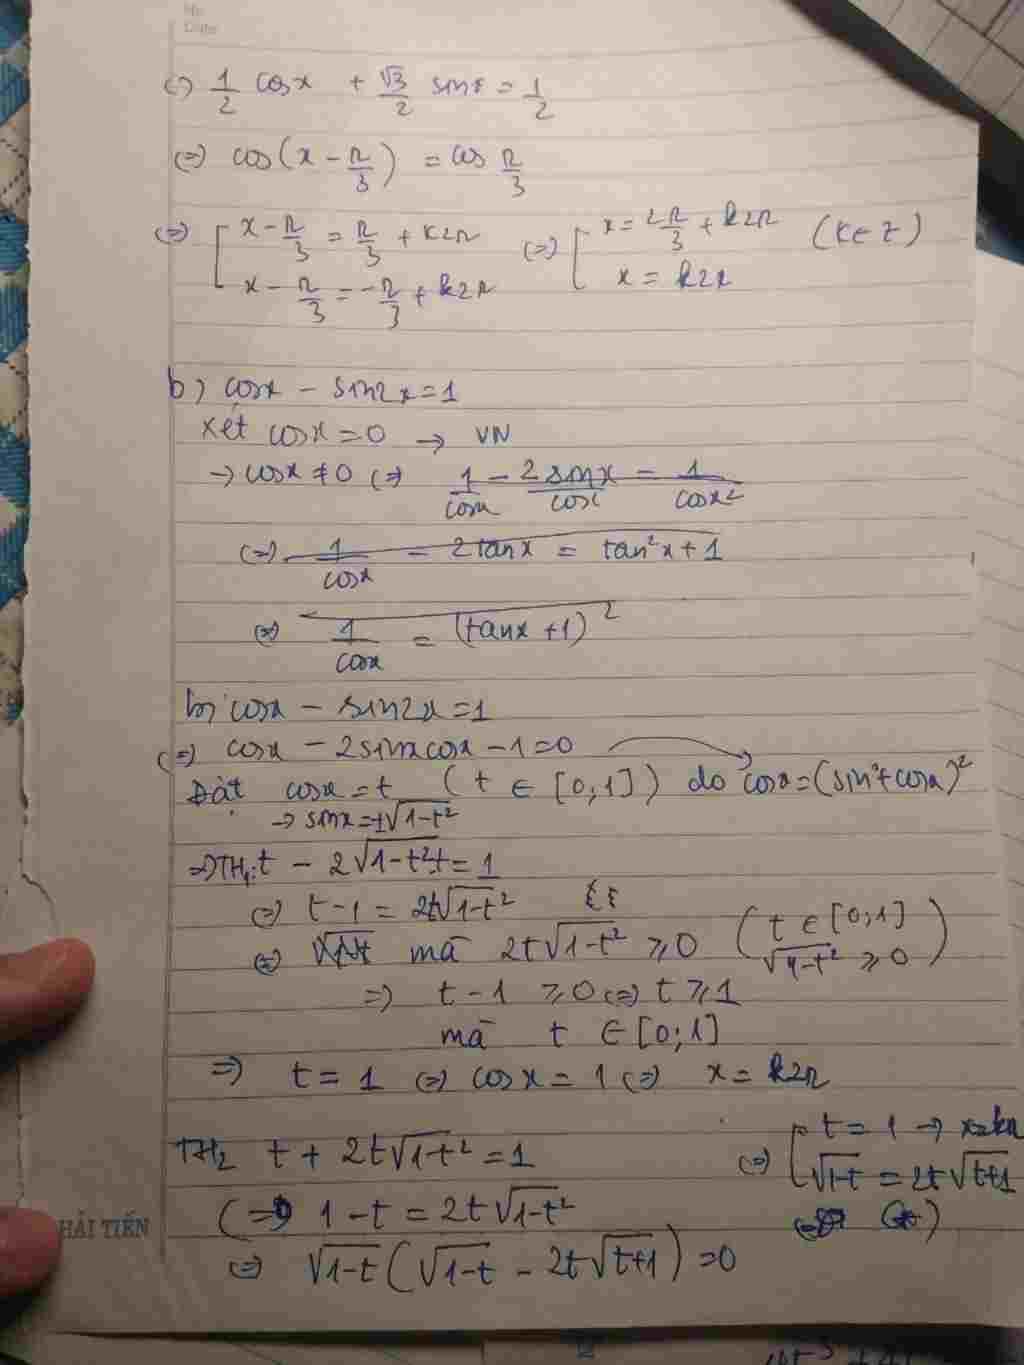 No.
Date
(=) 1/2 cosx + √3/2 sinx = 1/2
(=) cos(x - π/3) = cos π/3
(=) [ x - π/3 = π/3 + k2π (=) [ x = 2π/3 + k2π (k∈Z)
x - π/3 = -π/3 + k2π x = k2π
b) cosx - sin2x = 1
xét cosx = 0 → VN
→ cosx ≠ 0 (=) 1/cosx - 2sinx/cosx = 1/cosx²
(=) 1/cosx - 2tanx = tan²x + 1
(=) 1/cosx = (tanx + 1)²
b) cosx - sin2x = 1
(=) cosx - 2sinxcosx - 1 = 0
Đặt cosx = t (t ∈ [0;1]) do cosx = (sin²+cosx)²
→ sinx = ±√1-t²
=) TH1: t - 2√1-t².t = 1
(=) t - 1 = 2t√1-t²
(=) mà 2t√1-t² ≥ 0 (t ∈ [0;1]
√1-t² ≥ 0)
=) t - 1 ≥ 0 (=) t ≥ 1
mà t ∈ [0;1]
=) t = 1 (=) cosx = 1 (=) x = k2π
TH2 t + 2t√1-t² = 1
(=) 1 - t = 2t√1-t²
(=) √1-t (√1-t - 2t√t+1) = 0
(=) [ t = 1 → x = k2π
√1-t = 2t√t+1
(*)
HẢI TIẾN